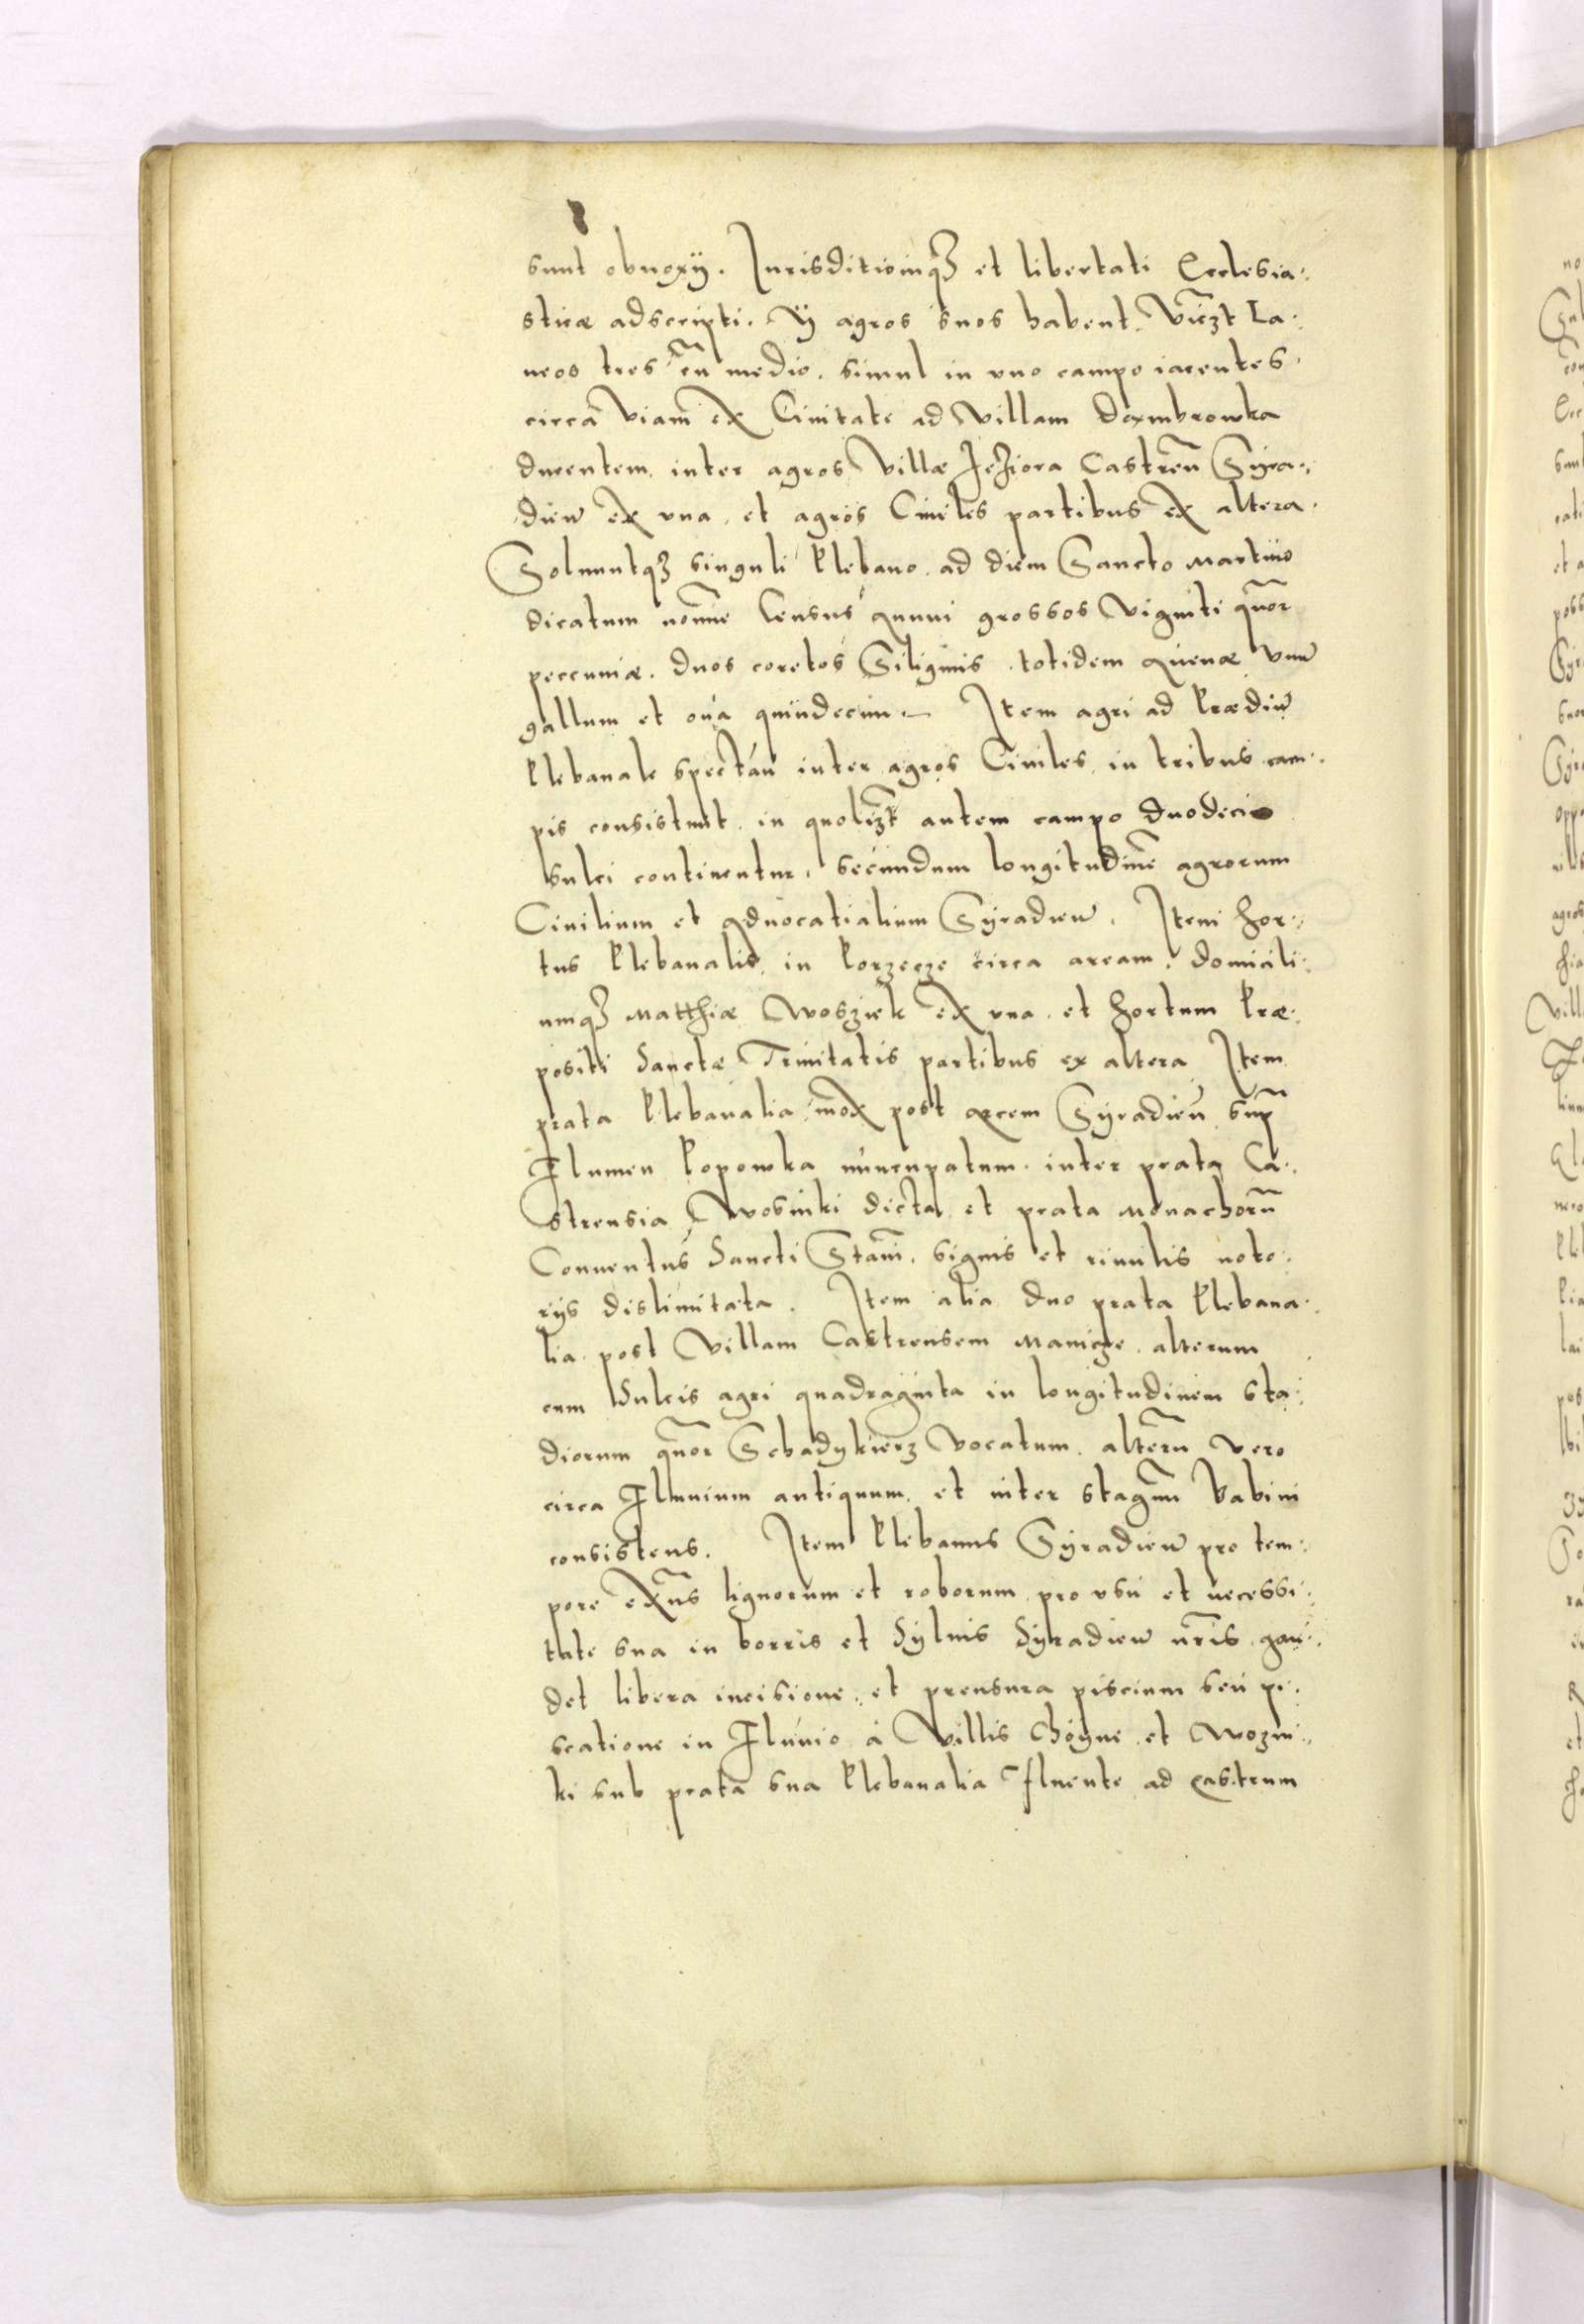 sunt obnoxij. Iurisditioniq(3) et libertati Ecclesia:
sticæ adscripti. Ÿ agros suos habent. Viczt La:
neos tres cū medio. simul in vno campo iacentes.
circa viam ex Ciuitate ad Villam Dambrowka
ducentem. inter agros Villæ Jeziora Castreñ Syra:
dieñ ex vna. et agros Ciuiles partibus ex altera.
Soluuntq(3) singuli Plebano. ad diem Sancto Martino
dicatum nomīe Census annui grossos viginti quor
peccuniæ. duos coretos Siliginis. totidem Auenæ vnū
gallum et oua quindecim. Item agri ad Prædiū
Plebanale spectañ inter agros Ciuiles. in tribus cam:
pis consistunt. in quolizt autem campo duodeci
sulci continentur, secundum longitudinē agrorum
Ciuilium et aduocatialium Syradieñ. Item Hor:
tus Plebanalis in Porzecze circa aream. domicili:
umq(3) Matthiæ Wosziek ex vna. et Hortum Præ:
positi Sanctæ Trinitatis partibus ex altera Item
prata Plebanalia mox post arcem Syradieñ. sup
Flumen Popowka nuncupatum. inter prata Ca:
strensia Wosniki dicta et prata Monachorū
Conuentus Sancti Stani. signis et riuulis noto:
rijs dislimitata. Item alia duo prata Plebana:
lia. post Villam Castrensem Manicze. alterum
cum Sulcis agri quadraginta in longitudinem sta:
diorum quor Schadykierz vocatum. alterū vero
circa Fluuium antiquum. et inter stagnū Babini
consistens. Item Plebanus Syradieñ pro tem:
pore exñs lignorum et roborum pro vsu et necessi:
tate sua in borris et Syluis Syradieñ nr̄is. gau:
det libera incisione. et prensura piscium seu pi:
scatione in Fluuio à Villis Choyne et Wozni:
ki sub prata sua Plebanalia fluente ad castrum